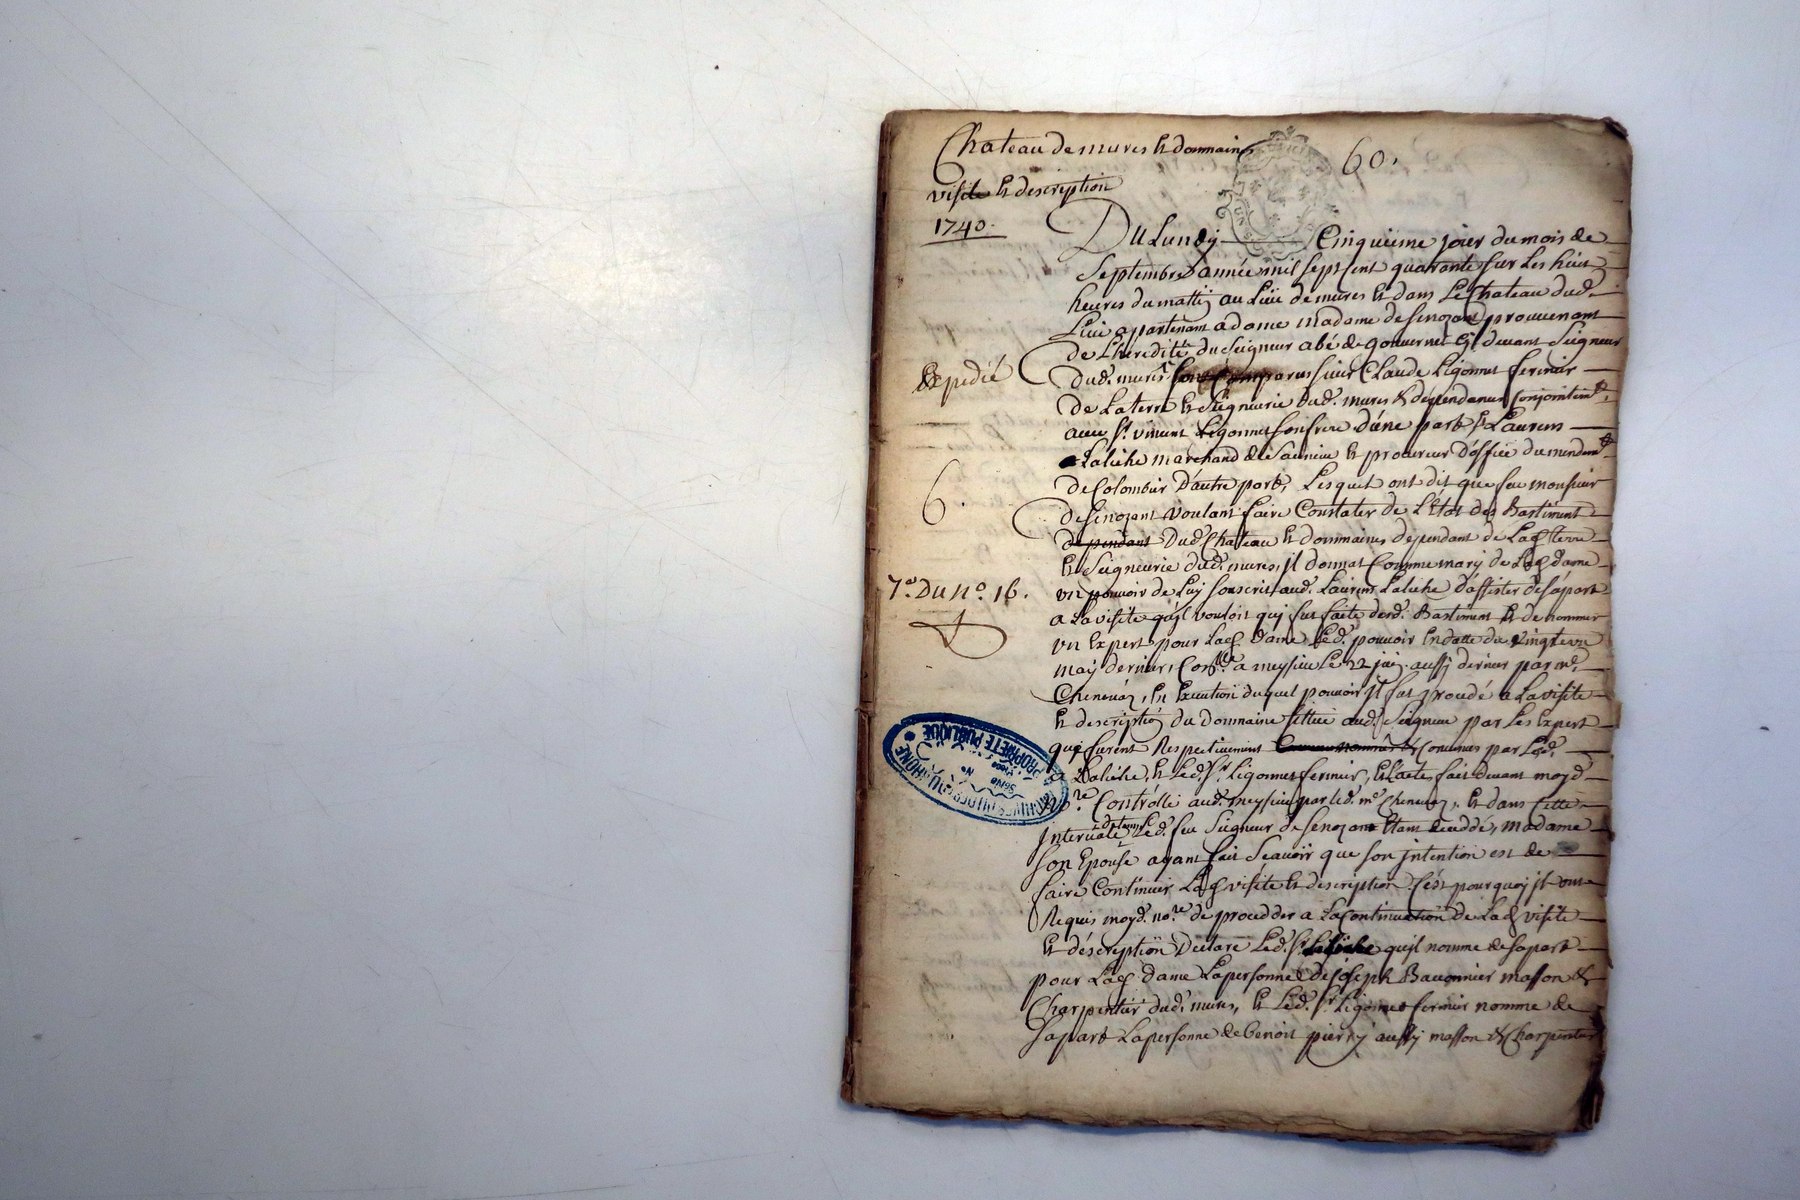 Chateau de mures & dommaine
60.
visite & description
1740.
Du Lundy Cinquieme jour du mois de
Septembre année mil sept cent quarante sur les huit
heures du matin au Lieu de mures & dans Le Chateau dud.
Lieu apartenant a dame madame de Senozant prouuenant
de L'heredité du Seigneur abé de gouuernet cy deuant Seigneur
Expedié
dud. mures comparus sieur Claude Ligonnet fermier
de La terre & Seigneurie dud. mures & dépendances conjointemt.
auec Sr. vincent Ligonnet son frere d'une part & Laurens
Laliche marchand de & procureur d'office du mandemt.
6.
de Colombier D'autre part, Lesquels ont dit que feu monsieur
de Senozant voulant faire Constater de L'Etat des Bastiment
dependant Dud. Chateau & dommaines dependant de Lad. terre
& Seigneurie dud. mures, jl donnat Comme mary de Lad. dame
7e. Du No. 16.
un pouuoir de Luy souscrit aud. Laurens Laliche d'assister de sa part
a La visite qu'jl vouloit quj fut faite desd. Bastiment & de nommer
un Expert pour Lad. Dame Led. pouuoir En datte du vingt
may dernier, Conllé a meysieu Le 22 juin aussy dernier par me.
, En Execution duquel pouuoir jl fut procedé a La visite
& description du Dommaine sittué aud. par Les Expert
quj furent Respectiuement conuenus par Led.
Laliche, & Led. Sr. Ligonnet fermier, & L'acte fait deuant moyd.
re. Contrôllé aud. meysieu par led. me. , & dans cette
jnterualle Led. feu Seigneur de Senozant Etant decedé, madame
son Epouse ayant fait sçauoir que son jntention est de
faire Continuer Lad. visite & description C'est pourquoy jl ont
Requis moyd. nore. de proceder a La Continuation de Lad. visite
& déscription Declare Led. Sr. Laliche qu'jl nomme de sa part
pour Lad. dame La personne de joseph Bauonnier masson &
Charpentier dud. mures, & Led. Sr. Ligonnet fermier nomme de
sa part La personne de benoit pierry aussy masson & Charpentier
ARCHIVES DU DEP. DU RHÔNE
PROPRIETE PUBLIQUE
Série No